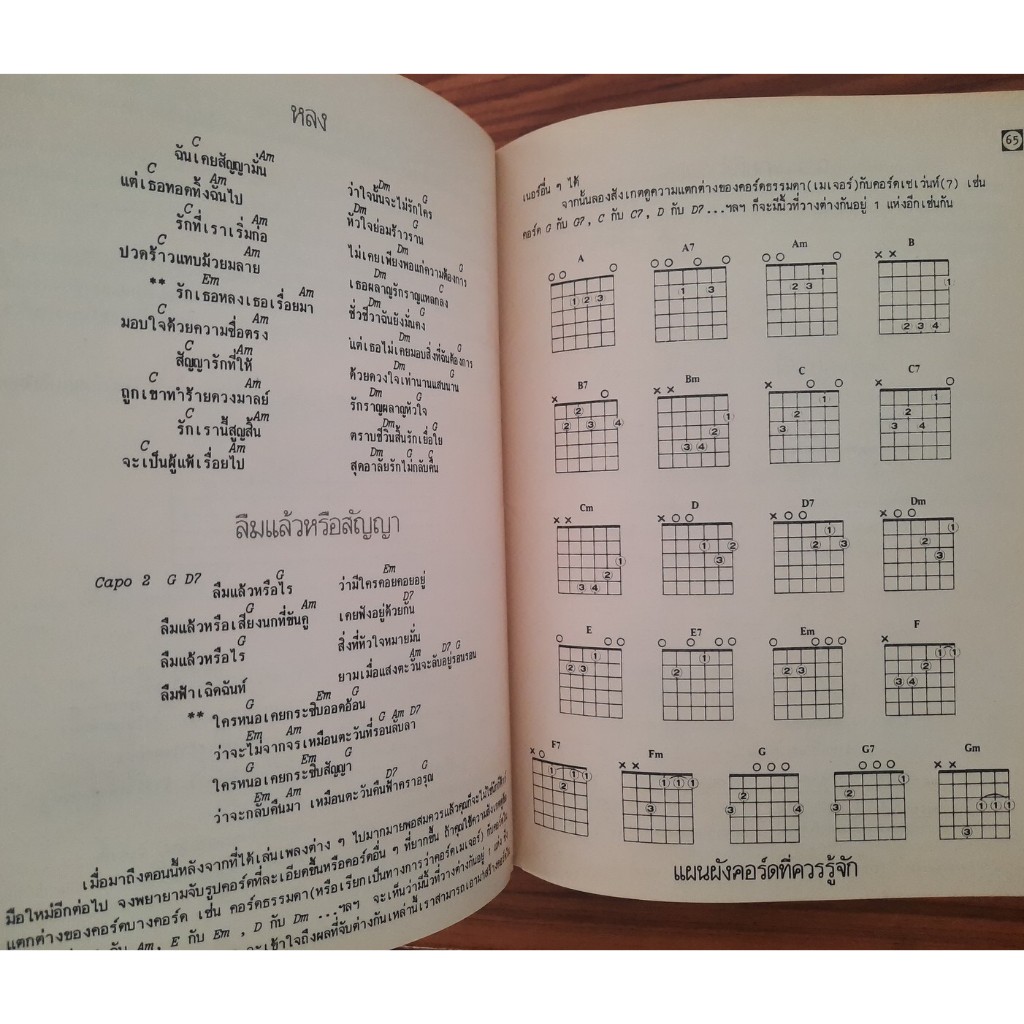 หลง
C Am
ฉันเคยสัญญามั่น
Dm G
ว่าใจนั้นจะไม่รักใคร
C Am
แต่เธอทอดทิ้งฉันไป
Dm G
หัวใจย่อมร้าวราน
C Am
รักที่เราเริ่มก่อ
Dm G
ไม่เคยเพียงพอแก่ความต้องการ
C Am
ปวดร้าวแทบม้วยมลาย
C
เธอผลาญรักราญแหลกลง
Em Am
** รักเธอหลงเธอเรื่อยมา
ชั่วชีวาฉันยังมั่นคง
C Am
มอบใจด้วยความซื่อตรง
แต่เธอไม่เคยมอบสิ่งที่ฉันต้องการ
C Am
สัญญารักที่ให้
ด้วยดวงใจเท่านานแสนนาน
C Am
ถูกเขาทำร้ายดวงมาลย์
Dm G
รักราญผลาญหัวใจ
C Am
รักเรานี้สูญสิ้น
Dm G
ตราบชีวินสิ้นรักเยื่อใย
C Am
จะเป็นผู้แพ้เรื่อยไป
Dm G C
สุดอาลัยรักไม่กลับคืน
ลืมแล้วหรือสัญญา
Capo 2 G D7
G Em
ลืมแล้วหรือไร ว่ามีใครคอยคอยอยู่
G Am D7
ลืมแล้วหรือเสียงนกที่ขันคู เคยฟังอยู่ด้วยกัน
G
ลืมแล้วหรือไร สิ่งที่หัวใจหมายมั่น
Am D7 G
ลืมฟ้าเฉิดฉันท์ ยามเมื่อแสงตะวันจะลับอยู่รอนรอน
G Em G
** ใครหนอเคยกระซิบออดอ้อน
Em Am G Am D7
ว่าจะไม่จากจร เหมือนตะวันที่รอนลับลา
G Em G
ใครหนอเคยกระซิบสัญญา
Em Am D7 G
ว่าจะกลับคืนมา เหมือนตะวันคืนฟ้าคราอรุณ
เมื่อมาถึงตอนนี้หลังจากที่ได้เล่นเพลงต่าง ๆ ไปมากมายพอสมควรแล้วคุณก็จะไม่ใช่
มือใหม่อีกต่อไป จงพยายามจับรูปคอร์ดที่ละเอียดขึ้นหรือคอร์ดอื่น ๆ ที่ยากขึ้น ถ้าคุณใช้ความสังเกต
แตกต่างของคอร์ดบางคอร์ด เช่น คอร์ดธรรมดา(หรือเรียกเป็นทางการว่าคอร์ดเมเจอร์) กับคอร์ด
กับ Am, E กับ Em , D กับ Dm ...ฯลฯ จะเห็นว่ามีนิ้วที่วางต่างกันอยู่ 1 แห่ง
จะเข้าใจถึงผลที่จับต่างกันเหล่านี้เราสามารถเอามา
65
เนอร์อื่น ๆ ได้
จากนั้นลองสังเกตดูความแตกต่างของคอร์ดธรรมดา(เมเจอร์)กับคอร์ดเซเว่นท์(7) เช่น
คอร์ด G กับ G7, C กับ C7, D กับ D7...ฯลฯ ก็จะมีนิ้วที่วางต่างกันอยู่ 1 แห่งอีกเช่นกัน
A A7 Am B
1 2 3 2 3 1 2 3 1 2 3 4
B7 Bm C C7
2 2 3 4 1 2 3 4 1 2 3 1 2 3 4
Cm D D7 Dm
1 2 3 4 1 2 3 1 2 3 1 2 3
E E7 Em F
1 2 3 1 2 2 3 1 1 2 3 4
F7 Fm G G7 Gm
1 1 1 1 2 1 1 1 3 2 3 4 1 2 3 1 1 1 3
แผนผังคอร์ดที่ควรรู้จัก